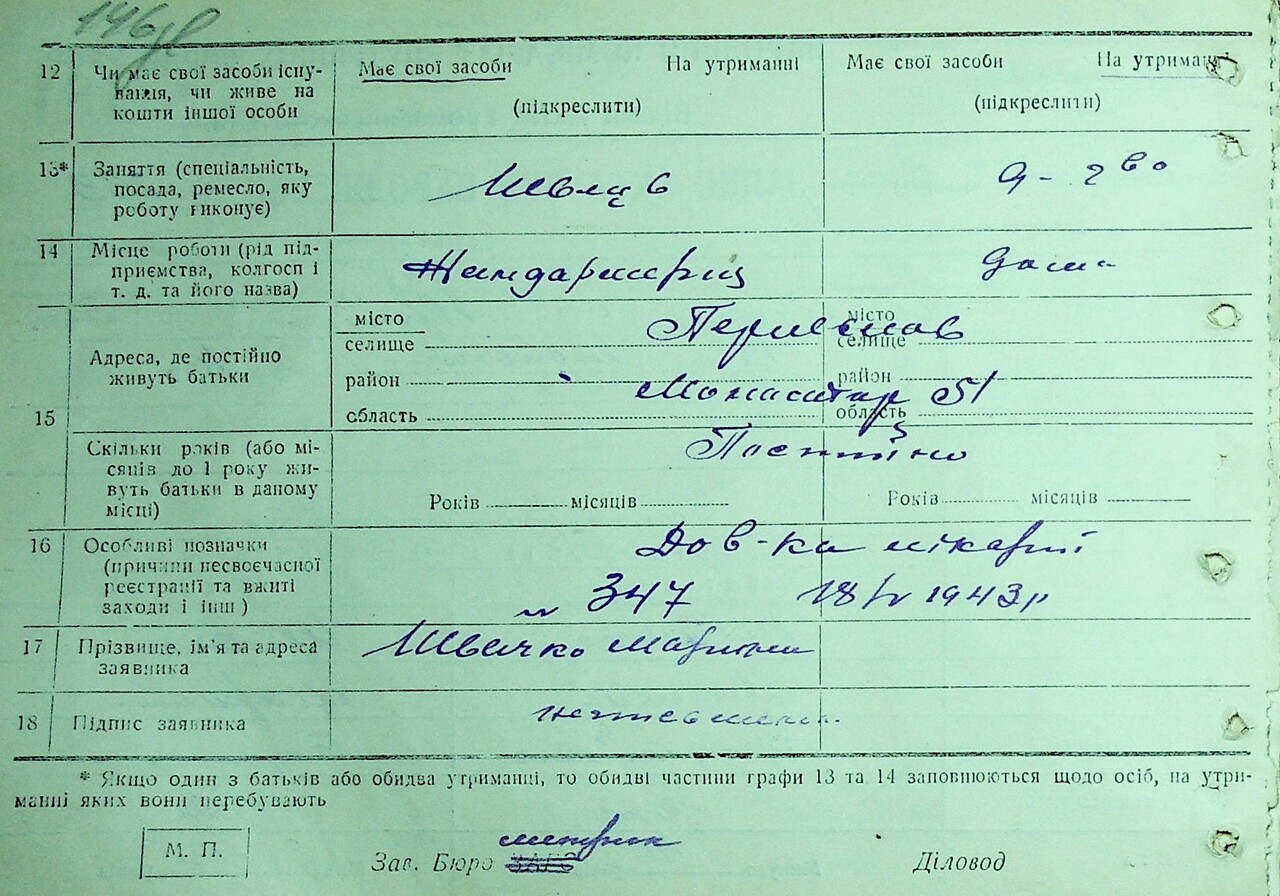 12 Чи має свої засоби існу- Має свої засоби На утриманні Має свої засоби На утриманні
вання, чи живе на
кошти іншої особи (підкреслити) (підкреслити)
13* Заняття (спеціальність,
посада, ремесло, яку Швець д-гво
роботу виконує)
14 Місце роботи (рід під-
приємства, колгосп і Жандармерия дома
т. д. та його назва)
місто місто
селище селище
Адреса, де постійно
живуть батьки район район
15 Монастир 51
область область
Скільки років (або мі- Постійно
сяців до 1 року жи-
вуть батьки в даному
місці) Років місяців Років місяців
16 Особливі позначки Дов-ка лікарні
(причини несвоєчасної
реєстрації та вжиті № 347 18/V 1943 р
заходи і інш)
17 Прізвище, ім'я та адреса Швачко
заявника
18 Підпис заявника
* Якщо один з батьків або обидва утриманні, то обидві частини графи 13 та 14 заповнюються щодо осіб, на утри-
манні яких вони перебувають
метрик
М. П. Зав. Бюро ЗАГС Діловод